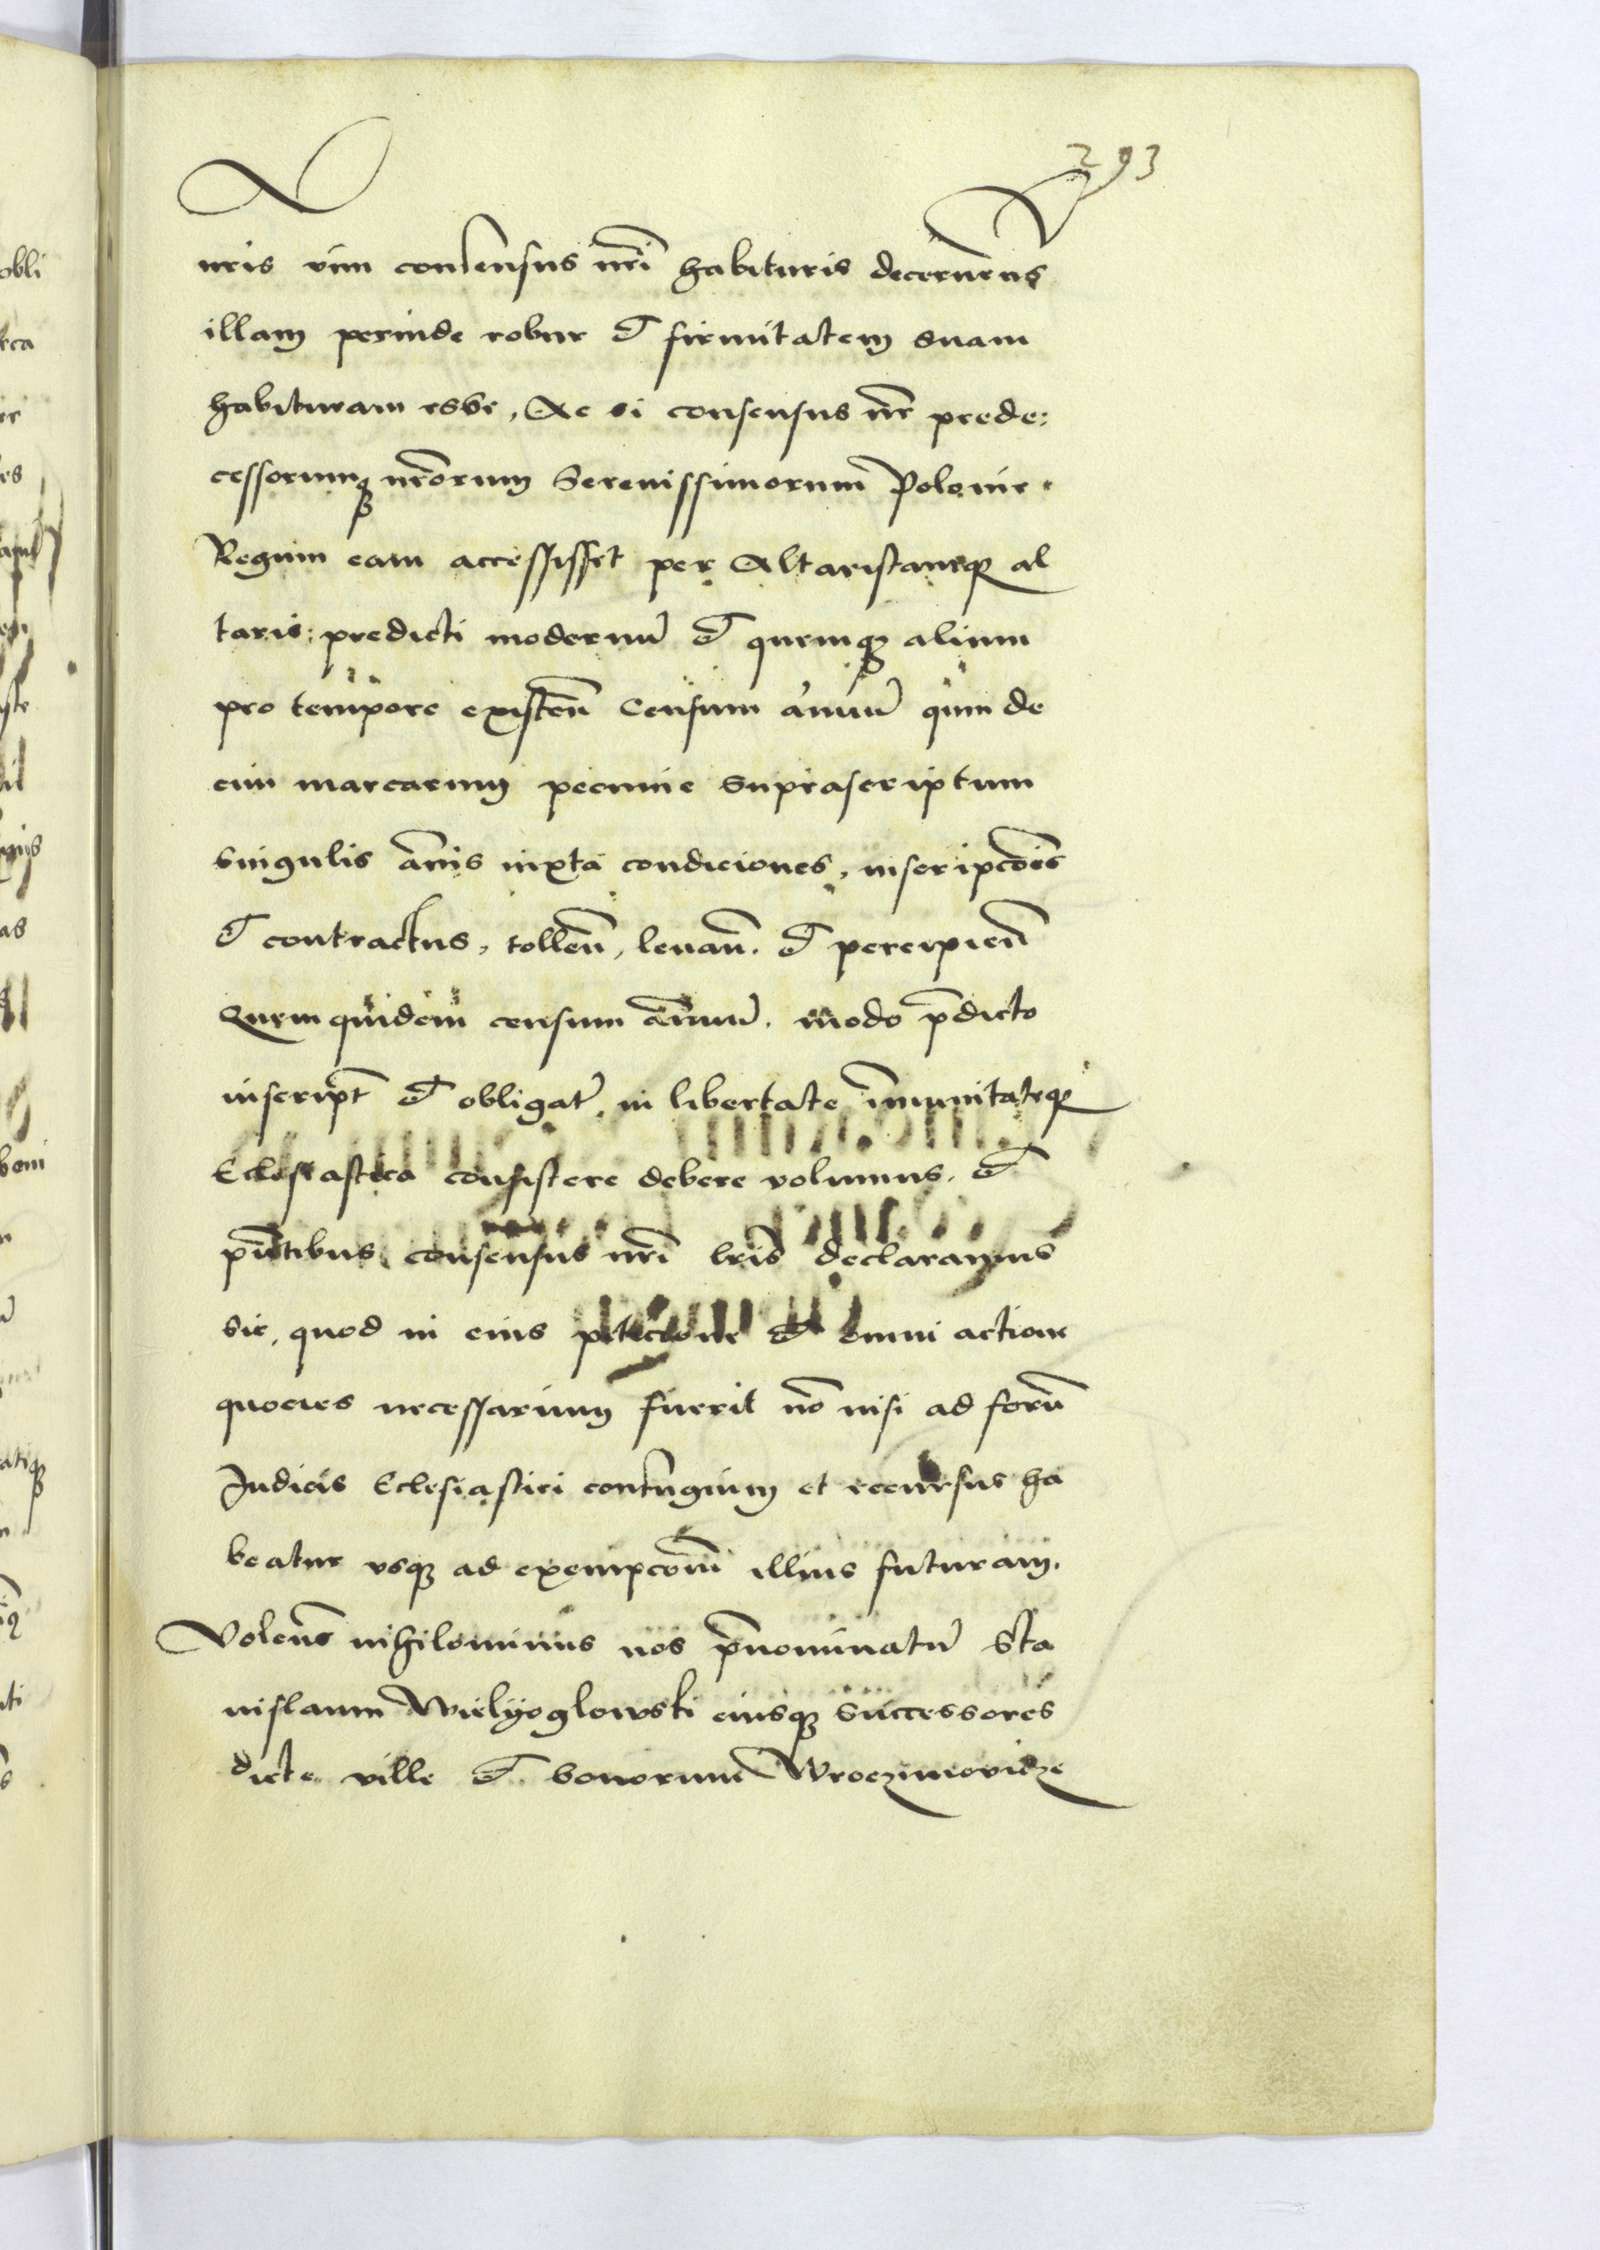 293
nris vim consensus nrj habituris decernens
illam perinde robur et firmitatem suam
habituram esse, Ac si consensus nr prede:
cessorumqꝫ nrorum Serenissimorum Polonie
Regum eam accessisset per Altaristamqꝫ al
taris predicti modernũ et quemqꝫ alium
pro tempore existeñ Censum annuũ quinde
cim marcarum pecunie suprascriptum
singulis ãnis iuxta condiciones, inscripcões
et contractus, tolleñ, levañ. et percipieñ
Quemquidem censum ãnuũ. modo p̃dicto
inscript̃ et obligat̃, in libertate im̃unitateqꝫ
Eclesiastica consistere debere volumus. et
pñtibus consensus nrj lris declaramus
sic, quod in eius peticione et omni actione
quocies necessarium fuerit nõ nisi ad forũ
Judicis Eclesiastici confugium et recursus ha
beatur usqꝫ ad exempcom̃ illius futuram.
Volens̃ nihilominus nos p̃nominatũ Sta
nislaum Wielyoglowski eiusqꝫ successores
dicte ville et bonorum Wroczimovicze